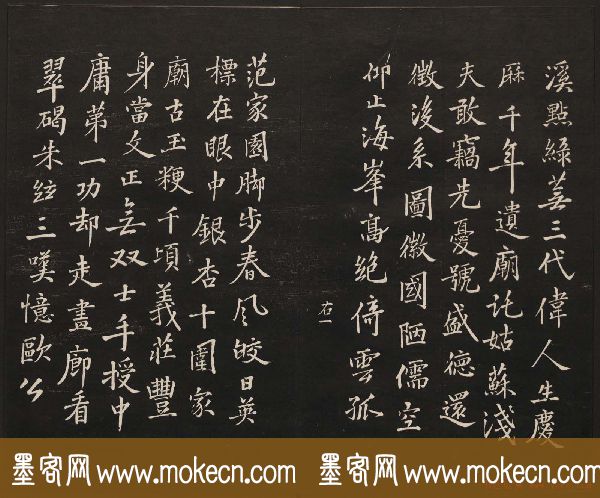 溪點綠蕪三代偉人生慶
厤千年遺廟託姑蘇淺
夫敢竊先憂號盛德還
徵後系圖徽國陋儒空
仰止海峯高絶倚雲孤
右一
范家園脚步春風皎日英
標在眼中銀杏十圍家
廟古玉粳千頃義莊豐
身當文正無双士手授中
庸第一功却走畫廊看
翠碣朱絃三嘆憶歐公
墨客网www.mokecn.com 墨客网www.mokecn.com